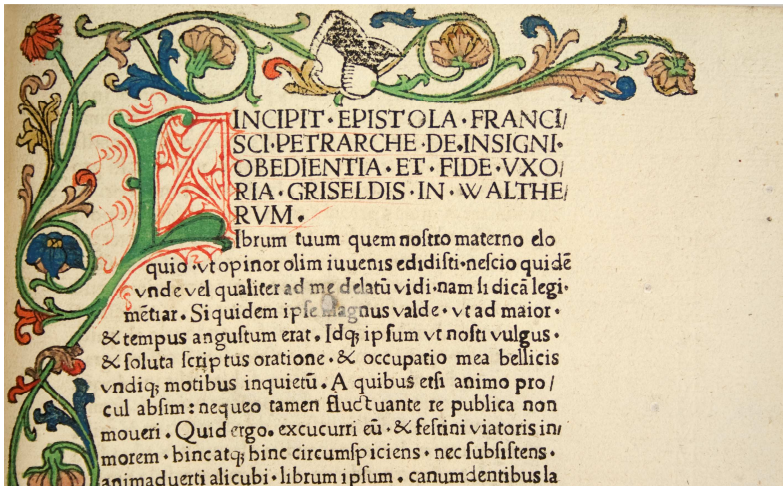 INCIPIT · EPISTOLA · FRANCI/
SCI · PETRARCHE · DE · INSIGNI ·
OBEDIENTIA · ET · FIDE · VXO/
RIA · GRISELDIS · IN · WALTHE/
RVM .
LIbrum tuum quem noſtro materno elo
quio · vt opinor olim iuuenis edidiſti · neſcio quidē
vnde vel qualiter ad me delatū vidi · nam ſi dicā legi ·
mētiar . Siquidem ipſe magnus valde · vt ad maior ·
& tempus anguſtum erat . Idqꝫ ipſum vt noſti vulgus ·
& ſoluta ſcriptus oratione · & occupatio mea bellicis
vndiqꝫ motibus inquietū . A quibus etſi animo pro/
cul abſim : nequeo tamen fluctuante re publica non
moueri . Quid ergo . excucurri eū · & feſtini viatoris in/
morem · hinc atqꝫ hinc circumſpiciens · nec ſubſiſtens ·
animaduerti alicubi · librum ipſum . canum dentibus la